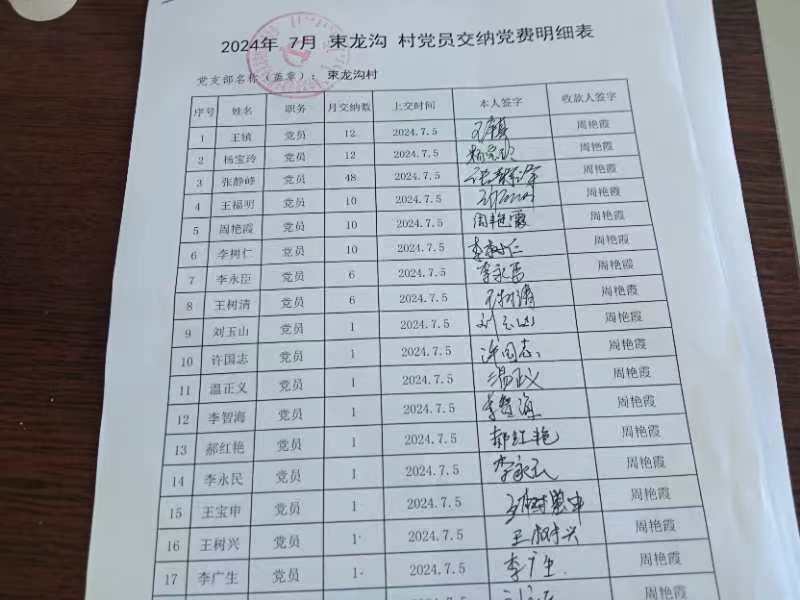 2024年 7月 束龙沟 村党员交纳党费明细表
党支部名称（盖章）： 束龙沟村
序号 姓名 职务 月交纳数 上交时间 本人签字 收款人签字
1 王镇 党员 12 2024.7.5 王镇 周艳霞
2 杨宝玲 党员 12 2024.7.5 杨宝玲 周艳霞
3 张静峰 党员 48 2024.7.5 周艳霞
4 王福明 党员 10 2024.7.5 周艳霞
5 周艳霞 党员 10 2024.7.5 周艳霞 周艳霞
6 李树仁 党员 10 2024.7.5 李树仁 周艳霞
7 李永臣 党员 6 2024.7.5 李永臣 周艳霞
8 王树清 党员 6 2024.7.5 王树清 周艳霞
9 刘玉山 党员 1 2024.7.5 刘玉山 周艳霞
10 许国志 党员 1 2024.7.5 许国志 周艳霞
11 温正义 党员 1 2024.7.5 温正义 周艳霞
12 李智海 党员 1 2024.7.5 李智海 周艳霞
13 郝红艳 党员 1 2024.7.5 郝红艳 周艳霞
14 李永民 党员 1 2024.7.5 李永民 周艳霞
15 王宝申 党员 1 2024.7.5 周艳霞
16 王树兴 党员 1 2024.7.5 王树兴 周艳霞
17 李广生 党员 1 2024.7.5 李广生 周艳霞
周艳霞